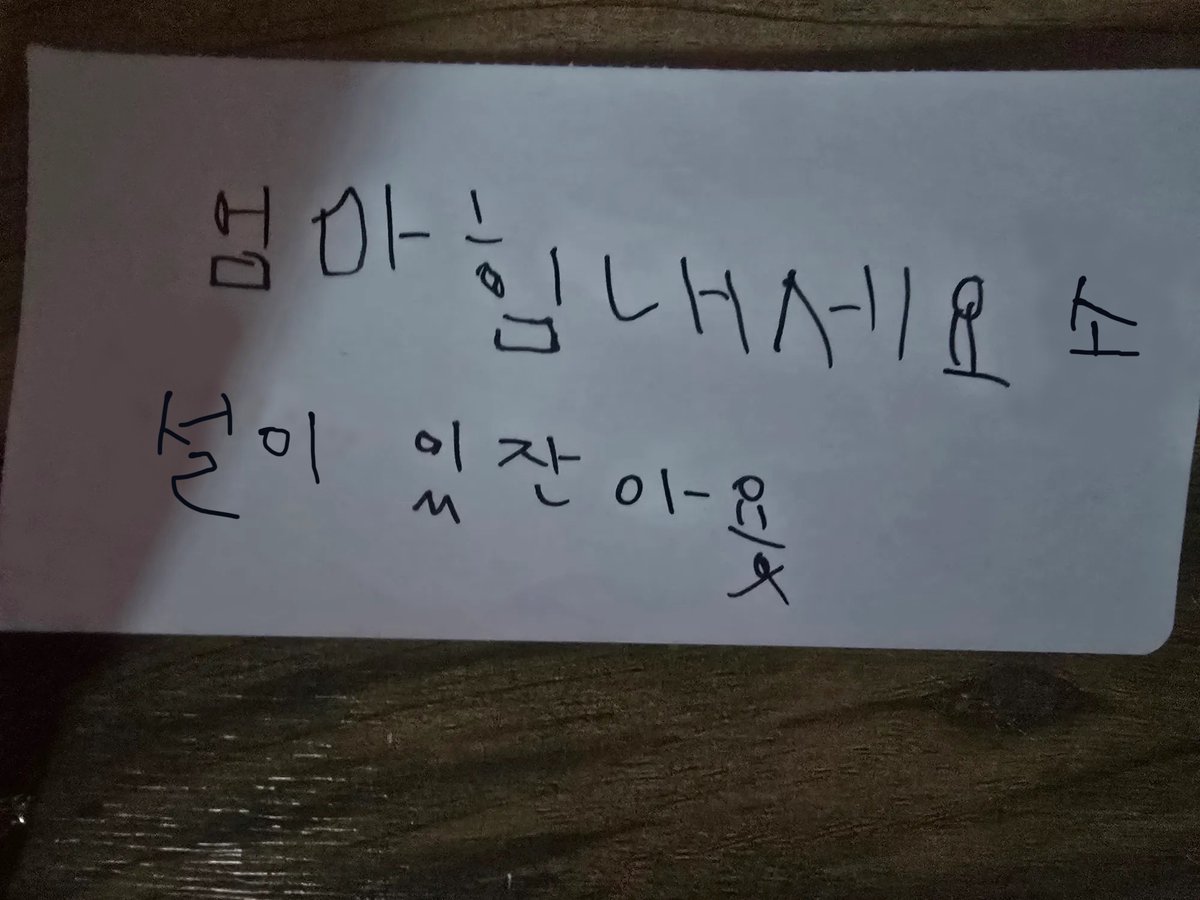 엄마 힘내세요 소
설이 있잔아욧